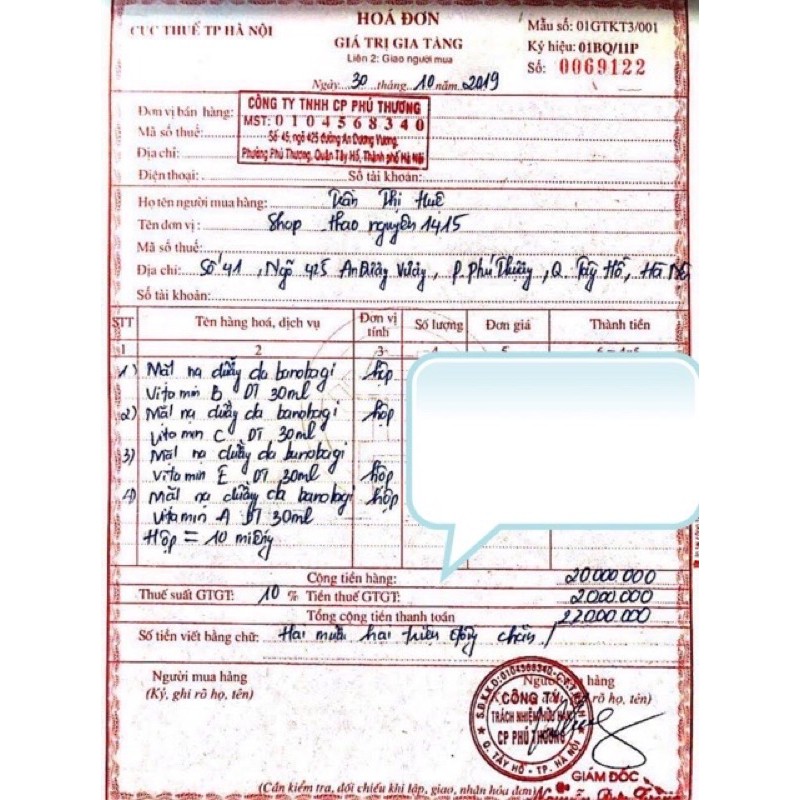 CỤC THUẾ TP HÀ NỘI
HOÁ ĐƠN
GIÁ TRỊ GIA TĂNG
Liên 2: Giao người mua
Ngày 30 tháng 10 năm 2019
Mẫu số: 01GTKT3/001
Ký hiệu: 01BQ/11P
Số: 0069122
Đơn vị bán hàng:
CÔNG TY TNHH CP PHÚ THƯƠNG
Mã số thuế:
MST: 0 1 0 4 5 6 8 3 4 0
Số 45, ngõ 425 đường An Dương Vương,
Địa chỉ:
Phường Phú Thượng, Quận Tây Hồ, Thành phố Hà Nội
Điện thoại: Số tài khoản:
Họ tên người mua hàng: Trần Thị Huệ
Tên đơn vị: Shop thao nguyên 1415
Mã số thuế:
Địa chỉ: Số 41, Ngõ 425 An Dương Vương, P. Phú Thượng, Q. Tây Hồ, Hà Nội
Số tài khoản:
STT Tên hàng hoá, dịch vụ Đơn vị tính Số lượng Đơn giá Thành tiền
1 2 3
1) Mặt nạ dưỡng da banobagi hộp
Vitamin B DT 30ml
2) Mặt nạ dưỡng da banobagi hộp
Vitamin C DT 30ml
3) Mặt nạ dưỡng da banobagi
Vitamin E DT 30ml hộp
4) Mặt nạ dưỡng da banobagi hộp
Vitamin A DT 30ml
Hộp = 10 miếng
Cộng tiền hàng: 20.000.000
Thuế suất GTGT: 10 % Tiền thuế GTGT: 2.000.000
Tổng cộng tiền thanh toán 22.000.000
Số tiền viết bằng chữ: Hai mươi hai triệu đồng chẵn /
Người mua hàng
(Ký, ghi rõ họ, tên)
Người bán hàng
rõ họ, tên)
S.Đ.K.K.D: 0104568340-C.T.T.N.H.H
CÔNG TY
TRÁCH NHIỆM HỮU HẠN
CP PHÚ THƯƠNG
Q. TÂY HỒ - TP. HÀ NỘI
GIÁM ĐỐC
(Cần kiểm tra, đối chiếu khi lập, giao, nhận hóa đơn)